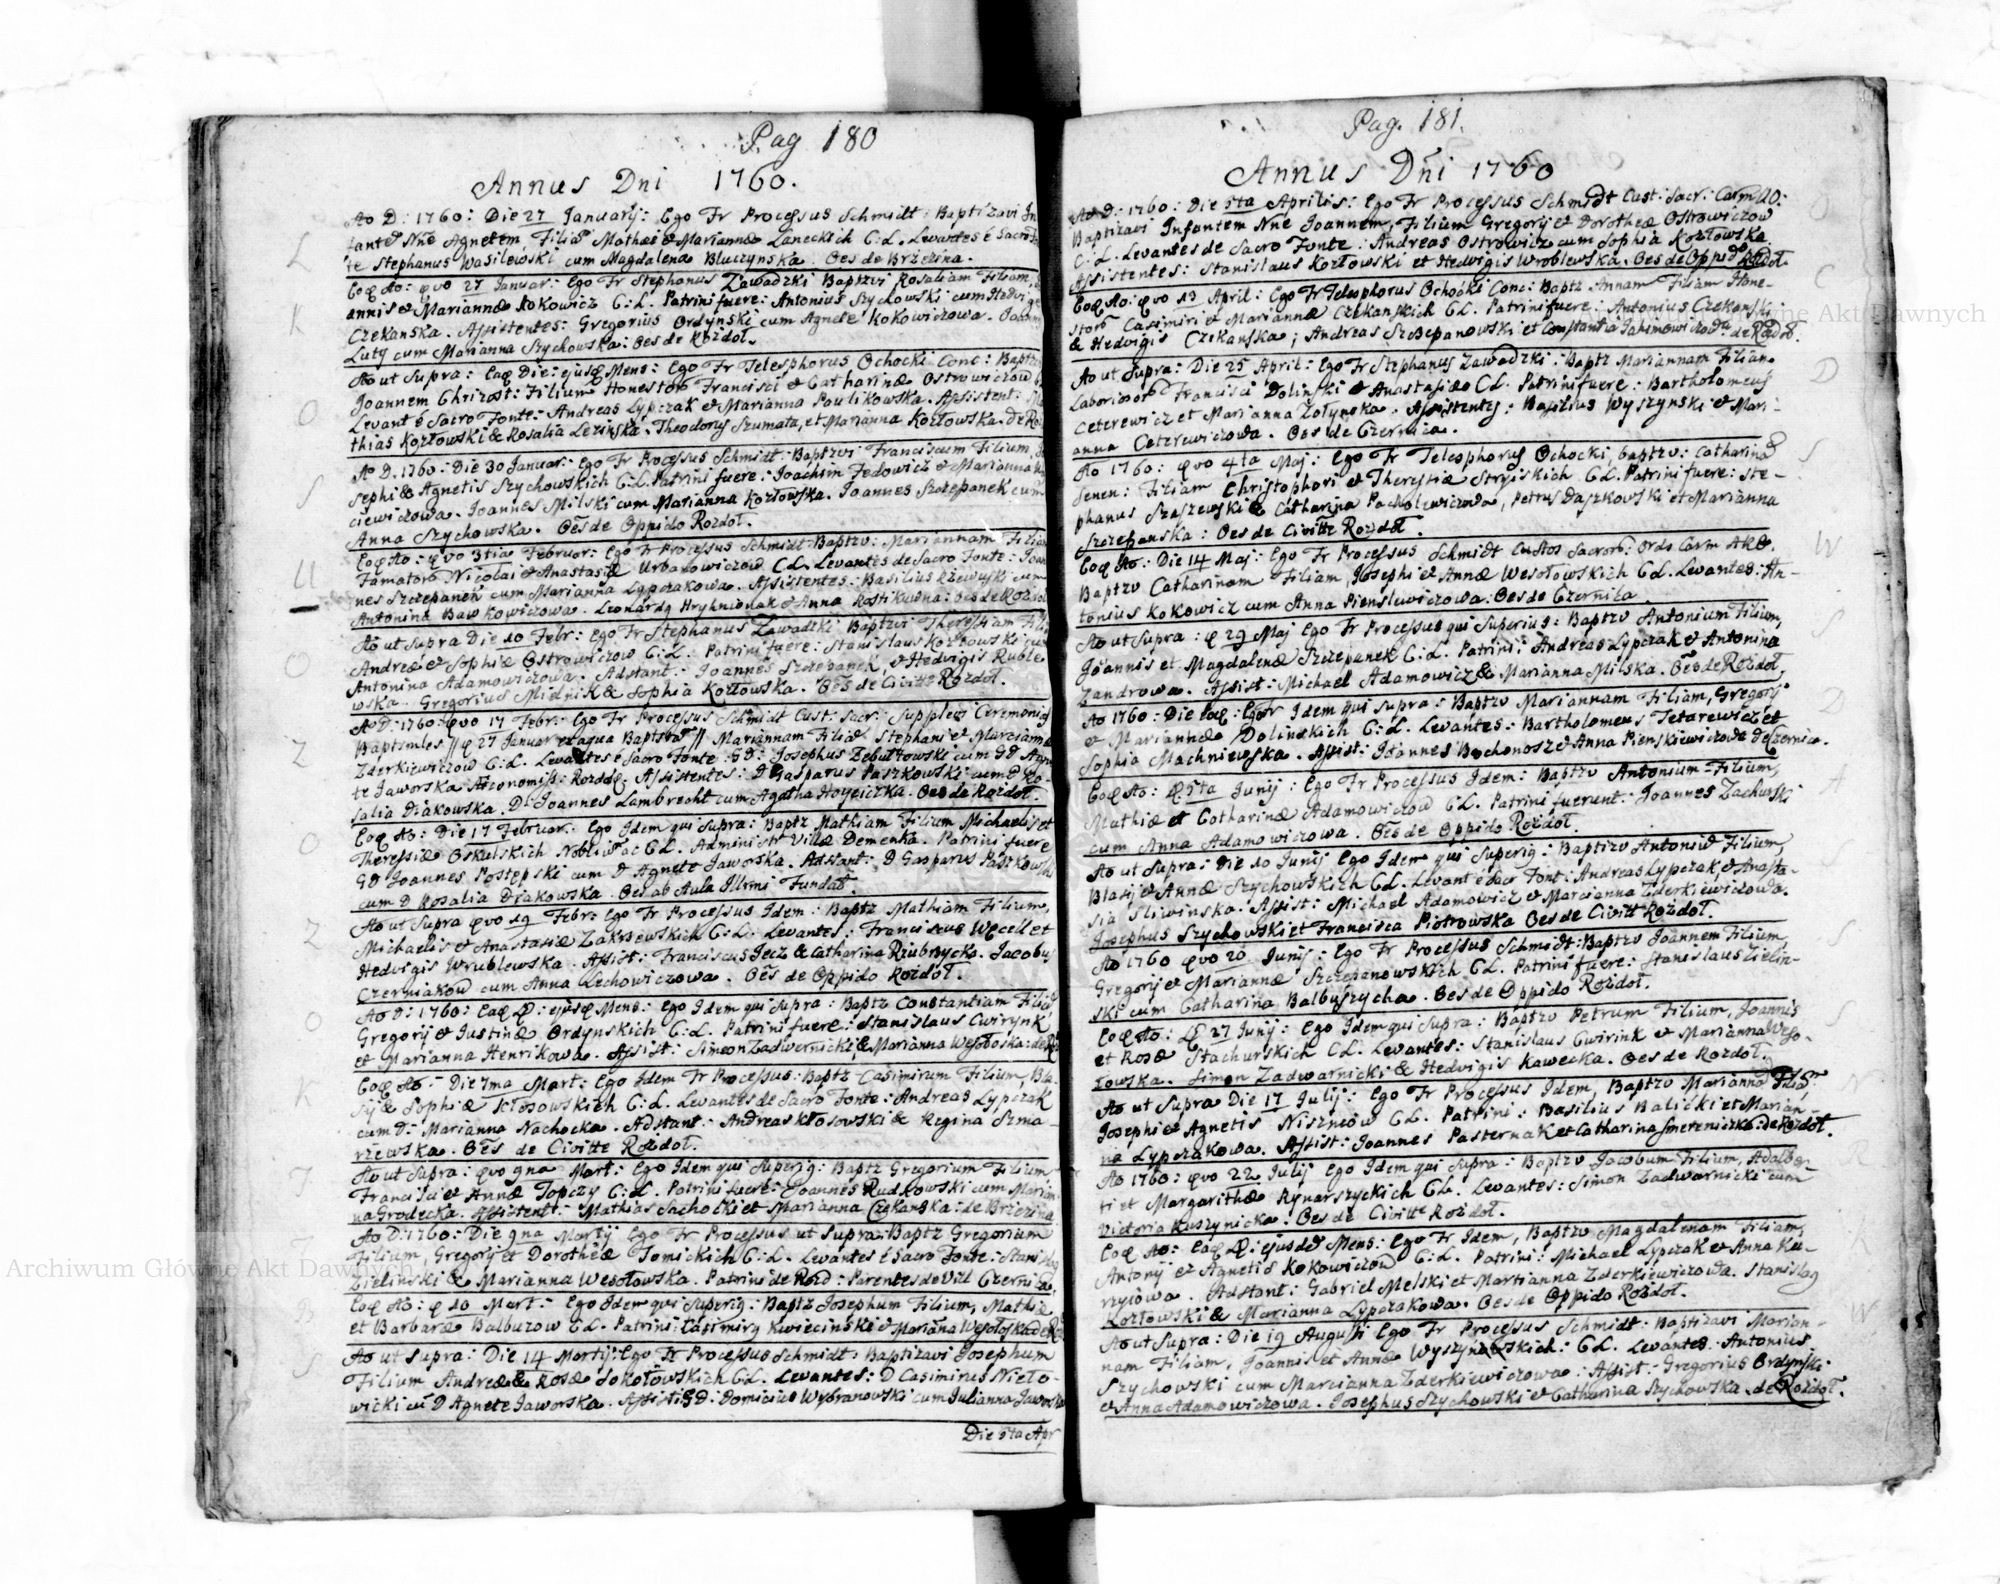 Pag 180
Annus Dni 1760.
Ao D: 1760: Die 27 Januarij: Ego Fr Processus Schmidt: Baptizavi In
fantē Nñe Agnetem, Filiã Mathæi & Mariannæ Laneckich C:L. Levantes é Sacro
te Stephanus Wasilewski cum Magdalena Bluczynska. Oes de Brzezina.
Eoq Ao: qvo 27 Januar: Ego Fr Stephanus Zawadzki Baptzvi Rosaliam Filiam,
annis & Mariannæ Kokowicz C:L. Patrini fuere: Antonius Szychowski cum Hedvige
Czekanska. Assistentes: Gregorius Ordynski cum Agnete Kokowiczowa. Joann
Luty cum Marianna Szychowska: Oes de Rozdoł.
Ao ut Supra: Eaq Die: ejusq Mens: Ego Fr Telesphorus Ochocki Conc: Baptz
Joannem Chrizost: Filium Honestorͦ Francisci & Catharinæ Ostrowiczow
Levant é Sacro Fonte: Andreas Lypczak & Marianna Paulikowska. Assistent:
thias Kozłowski & Rosalia Lezinska. Theodorus Szumata, et Marianna Kozłowska. de Roz
Ao D. 1760: Die 30 Januar: Ego Fr Processus Schmidt: Baptzvi Franciscum Filium,
sephi & Agnetis Szychowskich C:L. Patrini fuere: Joachim Fedowicz & Marianna
ciewiczowa. Joannes Milski cum Marianna Kozłowska. Joannes Szczepanek cum
Anna Szychowska. Oēs de Oppido Rozdoł.
Eoq Ao: qvo 3tia Februar: Ego Fr Processus Schmidt: Baptzv: Mariannam Filiam
Famatorͦ Nicolai & Anastasiæ Urbanowiczow C:L. Levantes de Sacro Fonte: Joan
nes Szczepanek cum Marianna Lypczakowa. Assistentes: Basilius Rzewuski cum
Antonina Bawkowiczowa. Leonardq Hryhniouak & Anna Rostikuwna: Oes de Rozdoł
Ao ut Supra Die 10 Febr: Ego Fr Stephanus Zawadzki Baptzvi Theressiam Fili
Andreæ & Sophiæ Ostrowiczow C:L. Patrini fuere: Stanislaus Kozłowski cum
Antonina Adamowiczowa. Adstant: Joannes Szczepanek & Hedvigis Ruble
wska. Gregorius Midnik & Sophia Kozłowska. Oēs de Civitte Rozdoł.
Ao D: 1760: qvo 17 Febr: Ego Fr Processus Schmidt Cust: Sacr: Supplevi Ceremonias
Baptsmles // q 27 Januar ex aqua Baptstā // Mariannam Filiã Stephani & Marciannæ
Zderkiewiczow C:L. Levantes e Sacro Fonte: GD: Josephus Zebułtowski cum GD Agne
te Jaworska Æconomiss: Rozdł. Assistentes: D Gasparus Paszkowski cum D Ro
salia Diakowska. D: Joannes Lambrecht cum Agatha Hoyeiczka. Oes de Rozdoł.
Eoq Ao: Die 17 Februar: Ego Idem qui Supra: Baptz Mathiam Filium Michaelis et
Theressiæ Oskulskich Nobliũ ac C:L. Administr Villæ Demenka. Patrini fuere
GD Joannes Postępski cum D Agnete Jaworska. Adstant: D Gasparus Paszkowski
cum D Rosalia Diakowska. Oes ab Aula Illrmi Fundat.
Ao ut Supra qvo 19 Febr: Ego Fr Processus Idem: Baptz Mathiam Filium,
Michaelis et Anastasiæ Zakrzewskich C:L. Levantes: Franciscus Węcel et
Hedvigis Wrublewska. Assist: Franciscus Jecz & Catharina Rziubnycka. Jacobus
Czerniakow cum Anna Lechowiczowa. Oēs de Oppido Rozdoł.
Ao D: 1760: Eaq D: ejusq Mens: Ego Idem qui Supra: Baptz Constantiam Filiã,
Gregorij & Justinæ Ordynskich C:L. Patrini fuere: Stanislaus Cwirynk
et Marianna Henrikowa. Assist: Simeon Zadwernicki & Marianna Wesołoska: de Ro
Eoq Ao: Die 7ma Mart: Ego Idem Fr Processus: Baptz Casimirum Filium, Bla-
sij & Sophiæ Kłosowskich C:L. Levantes de Sacro Fonte: Andreas Lypczak
cum D: Marianna Nachocka. Adstant: Andreas Kłosowski & Regina Szma-
rzewska. Oēs de Civitte Rozdoł.
Ao ut Supra: qvo 9na Mart: Ego Idem qui Superiq: Baptz Gregorium Filium
Francisci & Annæ Topczy C:L. Patrini fuere: Joannes Rudkowski cum Marian
na Grodecka. Assistent: Mathias Sachocki et Marianna Czekanska: de Brzezina
Ao D: 1760: Die 9na Martij Ego Fr Processus ut Supra: Baptz Gregorium
Filium, Gregorij et Dorotheæ Tomickich C:L. Levantes é Sacro Fonte: Stanislaq
Zielinski & Marianna Wesołowska. Patrini de Rozd: Parentes de Vill Czernica.
Eoq Ao: q 10 Mart: Ego Idem qui Superiq: Baptz Josephum Filium, Mathiæ
et Barbaræ Balbuzow C:L. Patrini: Casimirq Kwiecinski & Marianna Wesołoska de Ro
Ao ut Supra: Die 14 Martij: Ego Fr Processus Schmidt: Baptizavi Josephum
Filium Andreæ & Rosæ Sokołowskich C:L. Levantes: D Casimirus Nieto-
wicki cũ D Agnete Jaworska. Assisti: GD. Dornicius Wybranowski cum Julianna Jawors
Die 5ta Apr
L
K
O
S
U
O
Z
O
Z
O
K
T
T
B
S
Pag. 181.
Annus Dñi 1760
Ao D: 1760: Die 5ta Aprilis: Ego Fr Processus Schmidt Cust: Sacr: Carm AO:
Baptizavi Infantem Nne Joannem, Filium Gregorij & Dorotheæ Ostrowiczow
C:L. Levantes de Sacro Fonte: Andreas Ostrowicz cum Sophia Kozłowska
Assistentes: Stanislaus Kozłowski et Hedvigis Wroblewska. Oes de Oppido Rozdoł.
Eoq Ao: qvo 13 April: Ego Fr Telesphorus Ochocki Conc: Baptz Annam Filiam Hone-
storͦ Casimiri & Mariannæ Czekanskich C:L. Patrini fuere: Antonius Czekanski
& Hedvigis Czekanska; Andreas Szczepanowski et Constantia Jahimowiczowa de Rozdoł.
Ao ut Supra: Die 25 April: Ego Fr Stephanus Zawadzki: Baptz Mariannam Filiam
Laboriosorͦ Francisci Dolinski & Anastasiæ C:L. Patrini fuere: Bartholomeus
Ceterewicz et Marianna Zołynska. Assistentes: Basilius Wyszynski & Mari-
anna Ceterewiczowa. Oes de Czernica.
Ao 1760: qvo 4ta Maj: Ego Fr Telesphorus Ochocki, baptzv: Catharinã
Senen: Filiam Christophori & Theresiæ Stryiskich C:L. Patrini fuere: Ste-
phanus Szaszewski & Catharina Pacholewiczowa, Petrus Daszkowski et Marianna
Szczepanska: Oes de Civitte Rozdoł.
Eoq Ao: Die 14 Maj: Ego Fr Processus Schmidt Custos Sacrorͦ: Ords Carm AR&.
Baptzv Catharinam Filiam Josephi & Annæ Wesołowskich C:L. Levantes: An-
tonius Kokowicz cum Anna Pienslewiczowa: Oes de Czernica
Ao ut Supra: q 29 Maj Ego Fr Processus qui Superius: Baptzv Antonium Filium,
Joannis et Magdalenæ Szczepanek C:L. Patrini: Andreas Lypczak & Antonina
Zandrowa. Assist: Michael Adamowicz & Marianna Milska. Oēs de Rozdoł.
Ao 1760: Die Eaq: Ego Fr Idem qui Supra: Baptzv Mariannam Filiam, Gregorij
& Mariannæ Dolinskich C:L. Levantes: Bartholomeus Tetarewicz et
Sophia Machniewska. Assist: Joannes Bochonosz & Anna Pienskiewiczowa de Czernica.
Eoq Ao: q 5ta Junij: Ego Fr Processus Idem: Baptzv Antonium Filium,
Mathiæ et Catharinæ Adamowiczow C:L. Patrini fuerunt: Joannes Zachurski
cum Anna Adamowiczowa. Oēs de Oppido Rozdoł.
Ao ut Supra: Die 10 Junij Ego Idem qui Superiq: Baptizv Antoniũ Filium,
Blasij & Annæ Szychowskich C:L. Levant é Sacr Font: Andreas Lypczak, & Anasta-
sia Sliwinska. Assist: Michael Adamowicz & Marcianna Zderkiewiczowa.
Josephus Szychowski et Francisca Piotrowska Oes de Civitt Rozdoł.
Ao 1760 qvo 20 Junij: Ego Fr Processus Schmidt: Baptzv Joannem Filium
Gregorij & Mariannæ Szczepanowskich C:L. Patrini fuere: Stanislaus Zielin-
ski cum Catharina Balbuszycha. Oes de Oppido Rozdoł.
Eoq Ao: D 27 Junij: Ego Idem qui Supra: Baptzv Petrum Filium, Joannis
et Rosæ Stachurskich C:L. Levantes: Stanislaus Cwirink & Marianna Weso-
łowska. Simon Zadwarnicki & Hedvigis Kawecka. Oes de Rozdoł.
Ao ut Supra Die 17 Julij: Ego Fr Processus Idem, Baptzv Mariannã Filiã
Josephi & Agnetis Niszniow C:L. Patrini: Basilius Balićki et Marian-
na Lypczakowa. Assist: Joannes Pasternak et Catharina Smetenicka: de Rozdoł.
Ao 1760: qvo 22 Julij Ego Idem qui Supra: Baptzv Jacobum Filium, Adalber-
ti et Margarithæ Rynarszyckich C:L. Levantes: Simon Zadwarnicki cum
Victoria Kuszynicka: Oes de Civitte Rozdoł.
Eoq Ao: Eaq D: ejusdē Mens: Ego Fr Idem, Baptzv Magdalenam Filiam,
Antonij & Agnetis Kokowiczow C:L. Patrini: Michael Lypczak & Anna Ku-
rzyiowa. Adstant: Gabriel Melski et Martianna Zderkiewiczowa. Stanislaq
Kozłowski & Marianna Lypczakowa. Oes de Oppido Rozdoł.
Ao ut Supra: Die 19 Augusti Ego Fr Processus Schmidt: Baptizavi Marian-
nam Filiam, Joannis et Annæ Wyszynskich: C:L. Levantes: Antonius
Szychowski cum Marcianna Zderkiewiczowa: Assist: Gregorius Ordynski
& Anna Adamowiczowa. Josephus Szychowski & Catharina Szychowska. de Rozdoł.
O
C
D
S
W
S
D
A
S
S
S
N
R
K
W
Archiwum Główne Akt Dawnych
Archiwum Główne Akt Dawnych